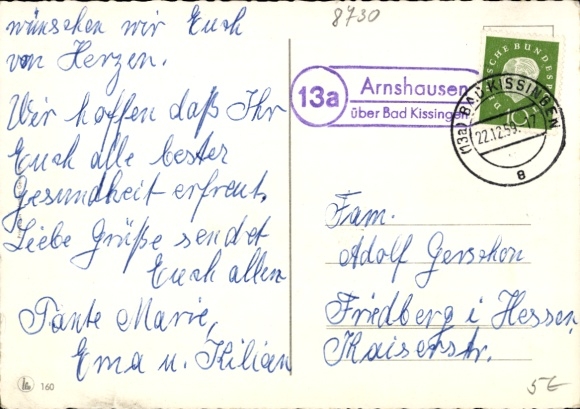 wünschen wir Euch
von Herzen.
Wir hoffen daß Ihr
Euch alle bester
Gesundheit erfreut.
Liebe Grüße sendet
Euch allen
Tante Marie,
Erna u. Kilian
160
8730
13a
Arnshausen
über Bad Kissingen
(13a) BAD KISSINGEN
22.12.59
a
DEUTSCHE BUNDESPOST
10
Fam.
Adolf Gerschon
Friedberg i Hessen
Kaiserstr.
5€